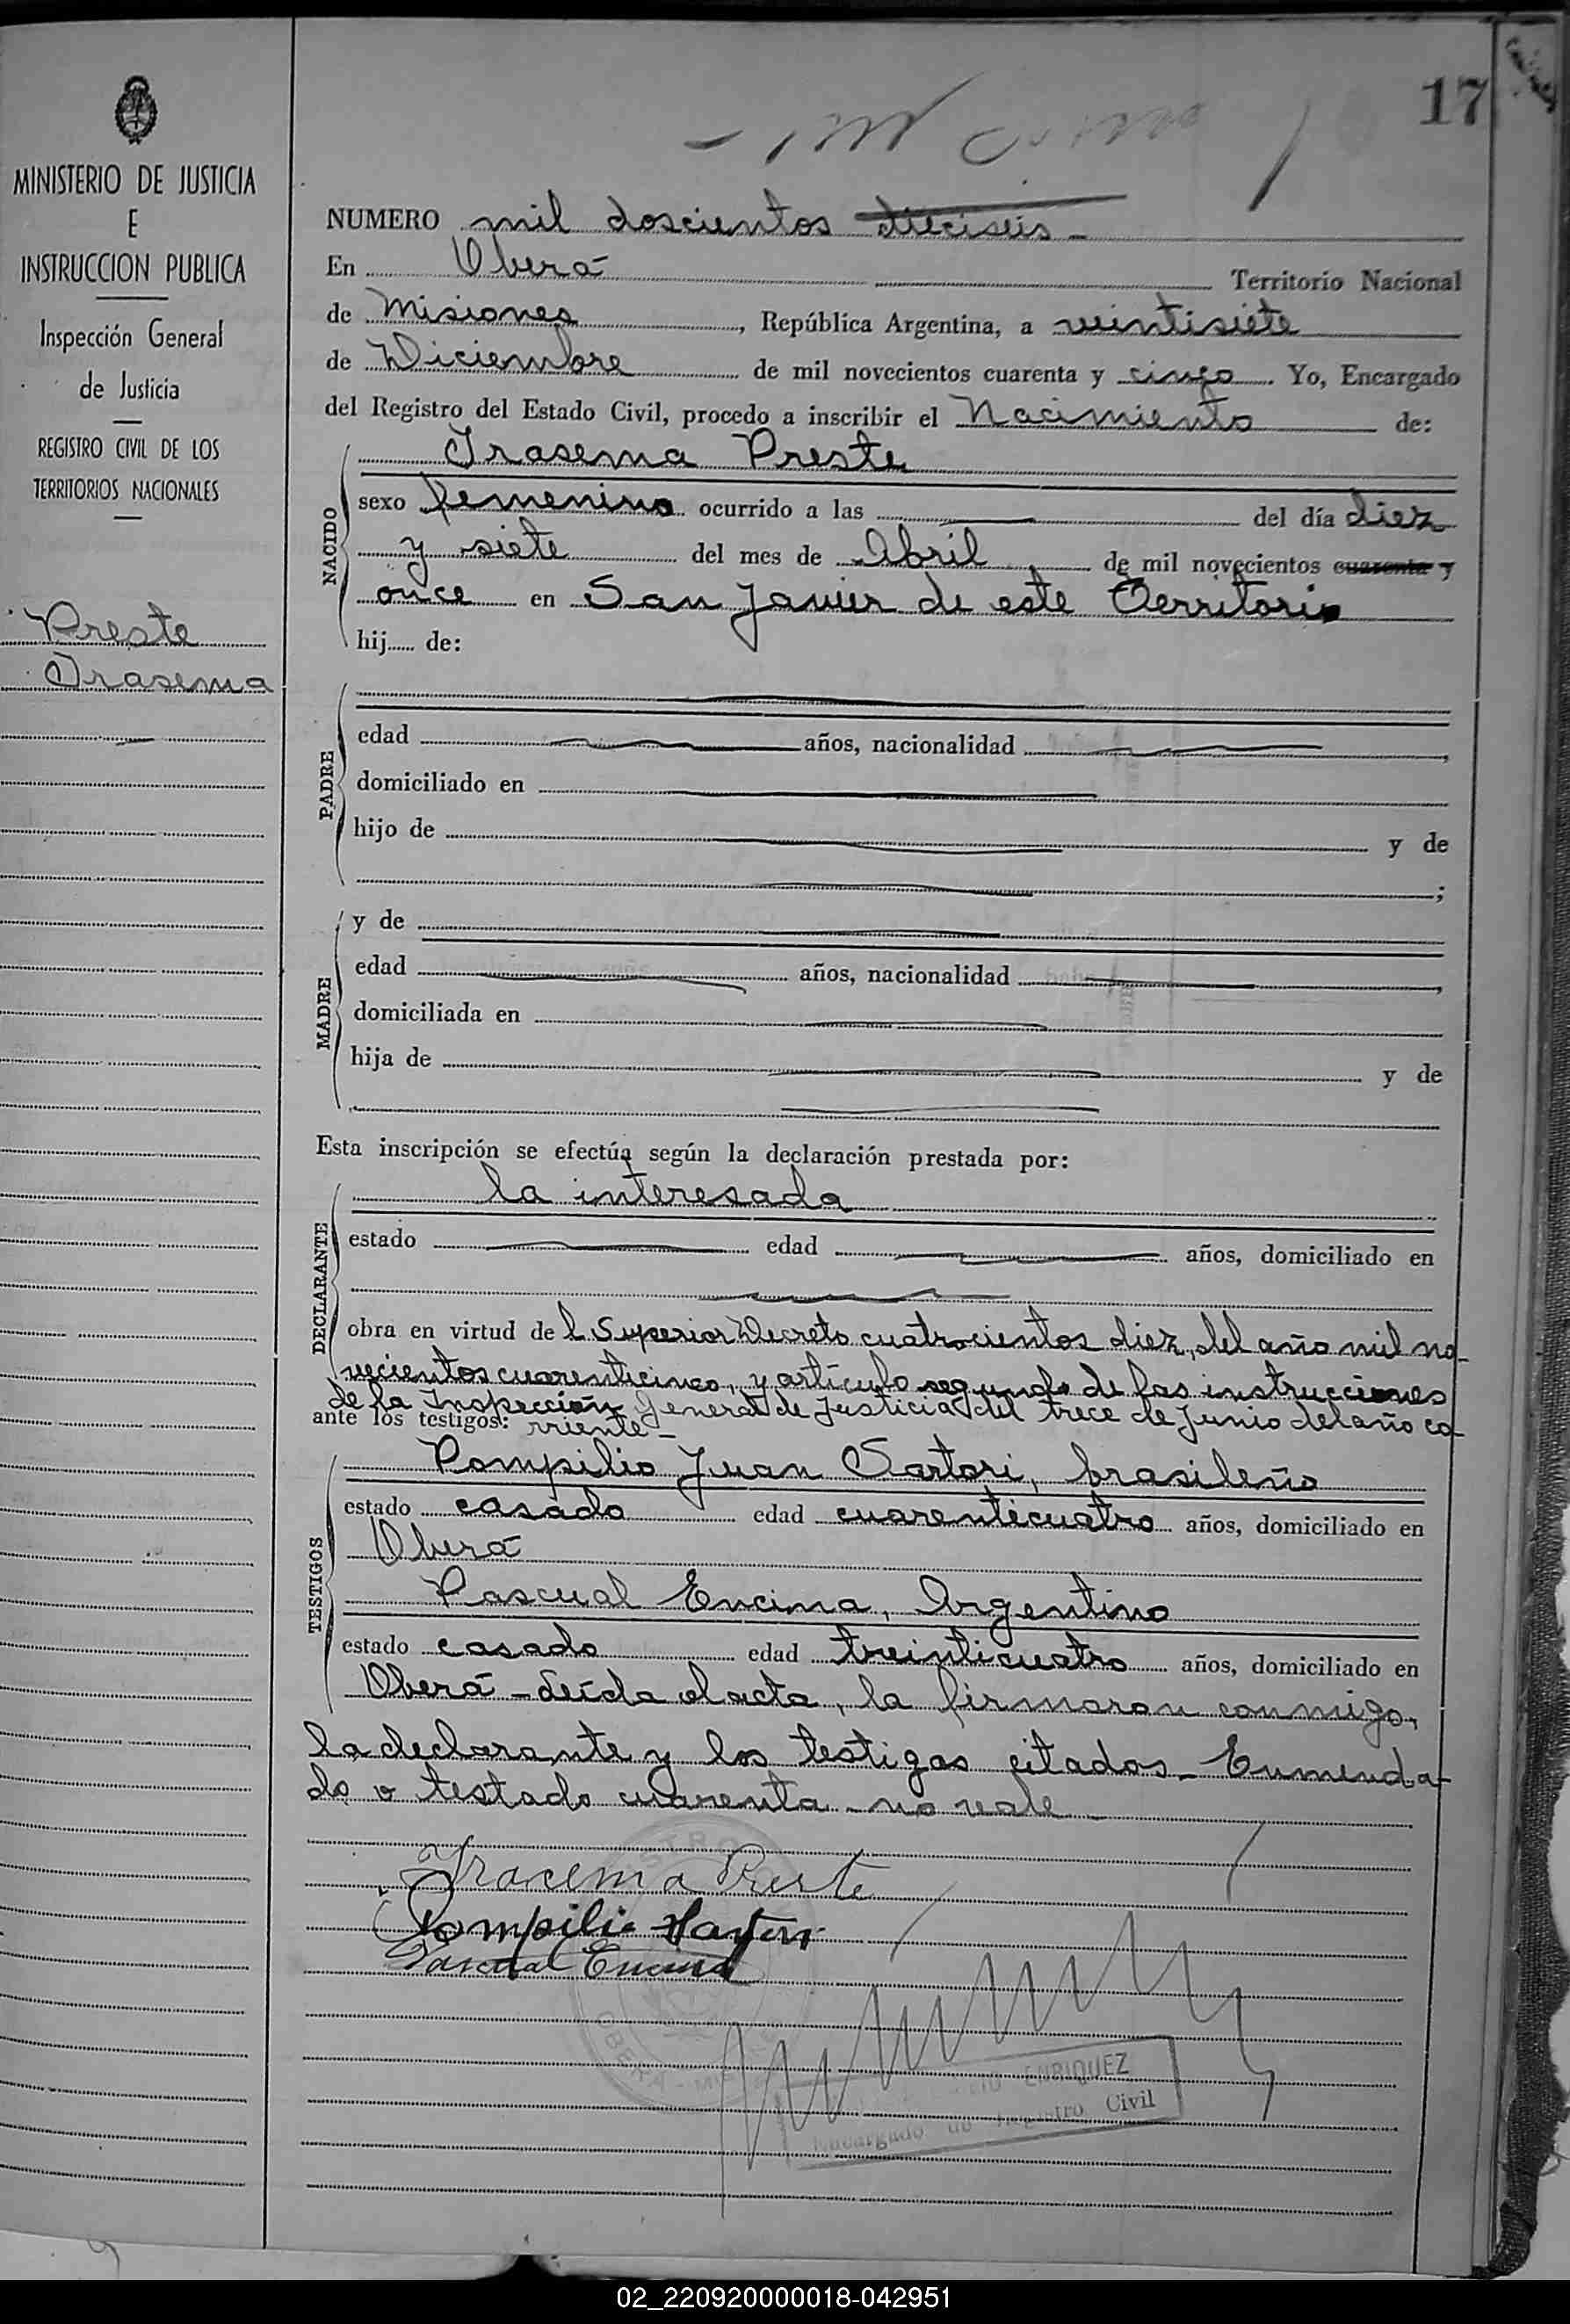 17
MINISTERIO DE JUSTICIA
E
INSTRUCCION PUBLICA
Inspección General
de Justicia
REGISTRO CIVIL DE LOS
TERRITORIOS NACIONALES
Preste
Irasema
NUMERO mil doscientos dieciseis -
En Oberá Territorio Nacional
de Misiones, República Argentina, a veintisiete
de Diciembre de mil novecientos cuarenta y cinco. Yo, Encargado
del Registro del Estado Civil, procedo a inscribir el Nacimiento de:
Irasema Preste
NACIDO
sexo femenino ocurrido a las del día diez
y siete del mes de Abril de mil novecientos cuarenta y
once en San Javier de este Territorio
hij de:
PADRE
edad años, nacionalidad
domiciliado en
hijo de y de
;
MADRE
y de
edad años, nacionalidad ,
domiciliada en
hija de y de
Esta inscripción se efectúa según la declaración prestada por:
DECLARANTE
la interesada
estado edad años, domiciliado en
obra en virtud del Superior Decreto cuatrocientos diez, del año mil no-
vecientos cuarenticinco, y artículo segundo de las instrucciones
de la Inspección General de Justicia del trece de Junio del año co-
ante los testigos: rriente -
TESTIGOS
Pompilio Juan Sartori, brasileño
estado casado edad cuarenticuatro años, domiciliado en
Oberá
Pascual Encina, Argentino
estado casado edad treinticuatro años, domiciliado en
Oberá - Leída el acta, la firmaron conmigo,
la declarante y los testigos citados - Enmenda-
do o testado cuarenta - no vale -
Iracema Preste
Pompilio Sartori
Pascual Encina
ENRIQUEZ
Encargado de Registro Civil
OBERA - MI
02_220920000018-042951